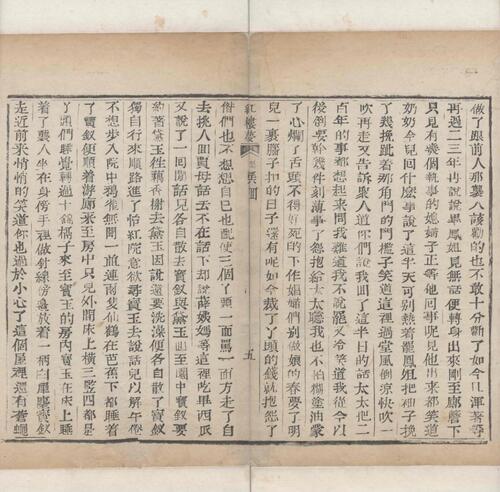 做了跟前人那襲人該勸的也不敢十分勸了如今且渾等
再過二三年再說說畢鳳姐見無話便轉身出來剛至廊簷下
只見有幾個執事的媳婦子正等他回事呢見他出來都笑道
奶奶今兒回什麽事說了這半天可別熱着罷鳳姐把袖子挽
了幾挽跐着那角門的門檻子笑道這裡過堂風倒涼快吹一
吹再走又告訴衆人道你們說我回了這半日的話太太把二
百年的事都想起來問我難道我不說罷又冷笑道我從今以
後倒要幹幾件刻薄事了怨抱給太太聽我也不怕糊塗油蒙
了心爛了舌頭不得好死的下作娼婦們別做娘的春夢了明
兒一裹腦子扣的日子還有呢如今裁了丫頭的錢就抱怨了
紅樓夢 回 五
偺們也不想想自己也配使三個丫頭一面罵一面方走了自
去挑人回賈母話去不在話下却說薛姨媽等這裡吃畢西瓜
又說了一回閒話兒各自散去寶釵與黛玉回至園中寶釵要
約着黛玉往藕香榭去黛玉因說還要洗澡便各自散了寶釵
獨自行來順路進了怡紅院意欲尋寶玉去說話兒以解午倦
不想步入院中鴉雀無聞一並連兩隻仙鶴在芭蕉下都睡着
了寶釵便順着游廊來至房中只見外間床上橫三竪四都是
丫頭們睡覺轉過十錦槅子來至寶玉的房內寶玉在床上睡
着了襲人坐在身傍手裡做針線傍邊放着一柄白犀麈寶釵
走近前來悄悄的笑道你也過於小心了這個屋裡還有蒼蠅